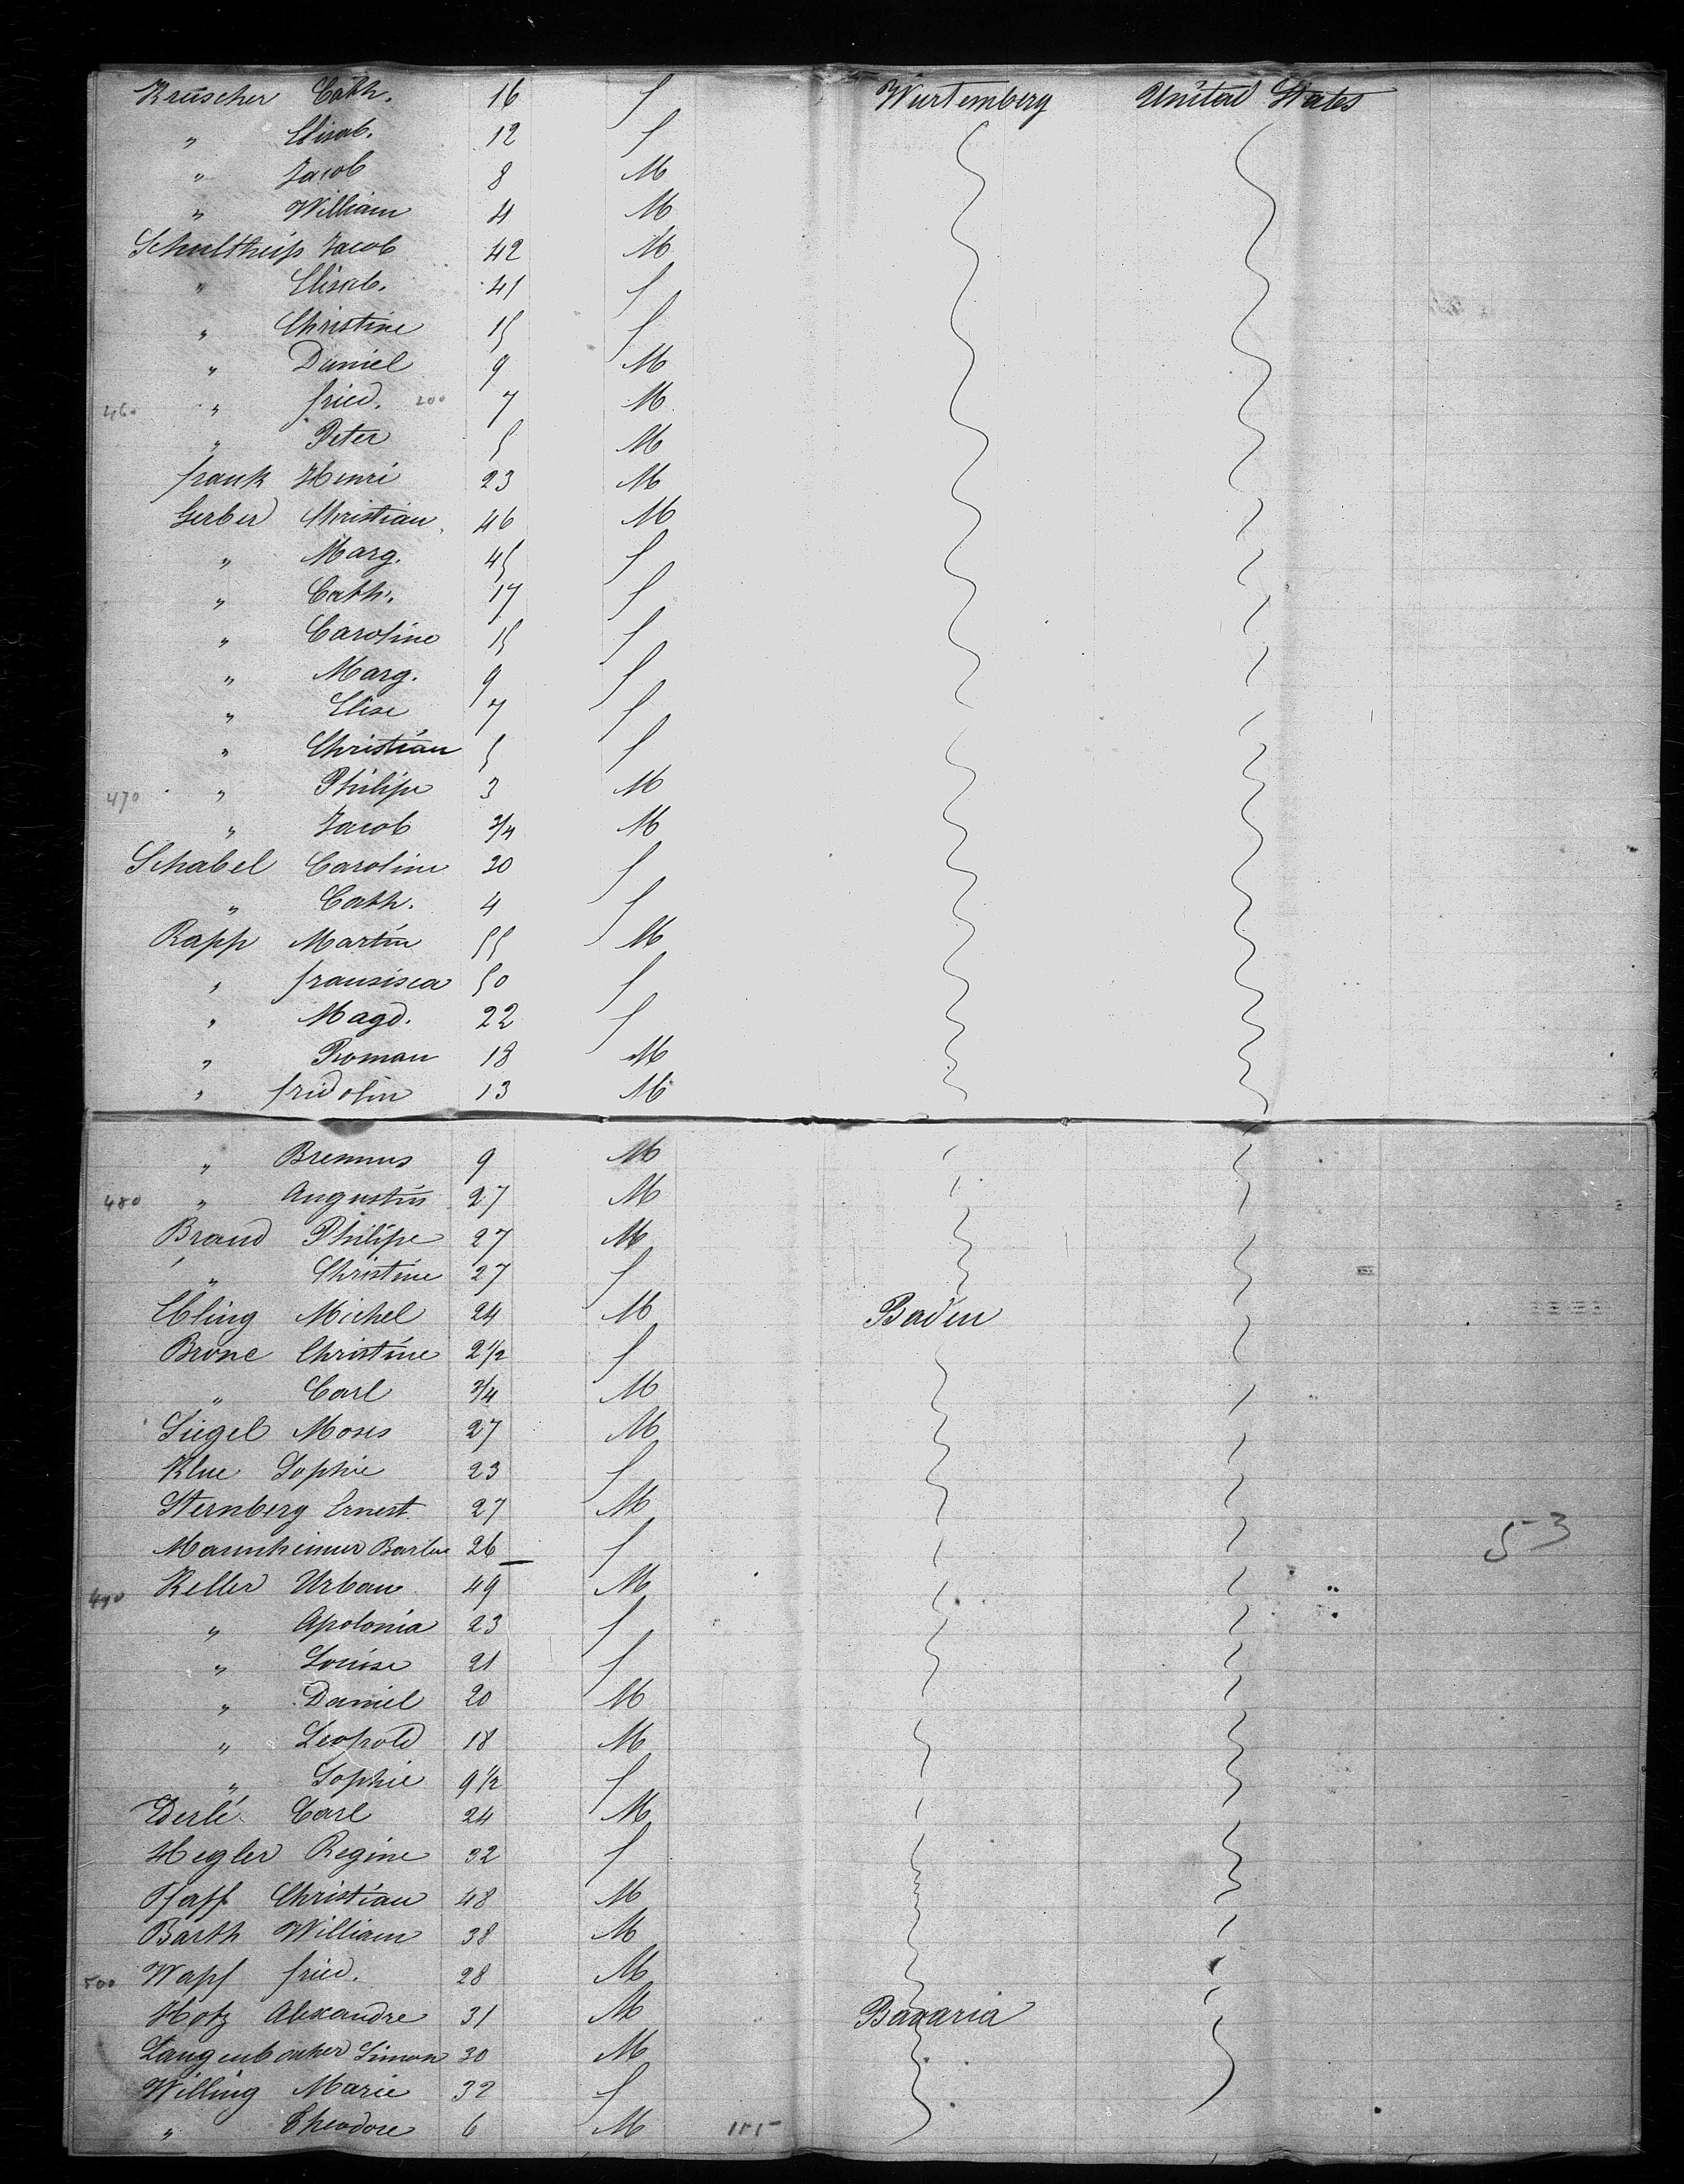 Kruscher Cath. 16 f Wurtemberg United States
" Elisab. 12 f
" Jacob 8 M
" William 4 M
Schultheiss Jacob 42 M
" Elisab. 41 f
" Christine 15 f
" Daniel 9 M
460 " fried. 200 7 M
" Peter 5 M
frank Henri 23 M
Gerber Christian 46 M
" Marg. 45 f
" Cath. 17 f
" Caroline 15 f
" Marg. 9 f
" Elise 7 f
" Christian 5 f
470 " Philipe 3 M
" Jacob 3/4 M
Schabel Caroline 20 f
" Cath. 4 f
Rapp Martin 55 M
" fransisca 50 f
" Magd. 22 f
" Roman 18 M
" fridolin 13 M
" Bremnus 9 M
480 " Augustin 27 M
Brand Philipe 27 M
" Christine 27 f
Ebling Michel 24 M Baden
Brone Christine 2 1/2 f
" Carl 3/4 M
Siegel Moses 27 M
Klue Sophie 23 f
Sternberg Ernest 27 M
Mannheimer 26 f 53
490 Keller Urban 49 M
" Apolonia 23 f
" Louise 21 f
" Daniel 20 M
" Leopold 18 M
" Sophie 9 1/2 f
Carl 24 M
Hegler Regine 32 f
Pfaff Christian 48 M
Barth William 38 M
500 Wapf fried. 28 M
Hotz Alexandre 31 M Bavaria
Langenbacher Simon 30 M
Willing Marie 32 f
" Theodore 6 M